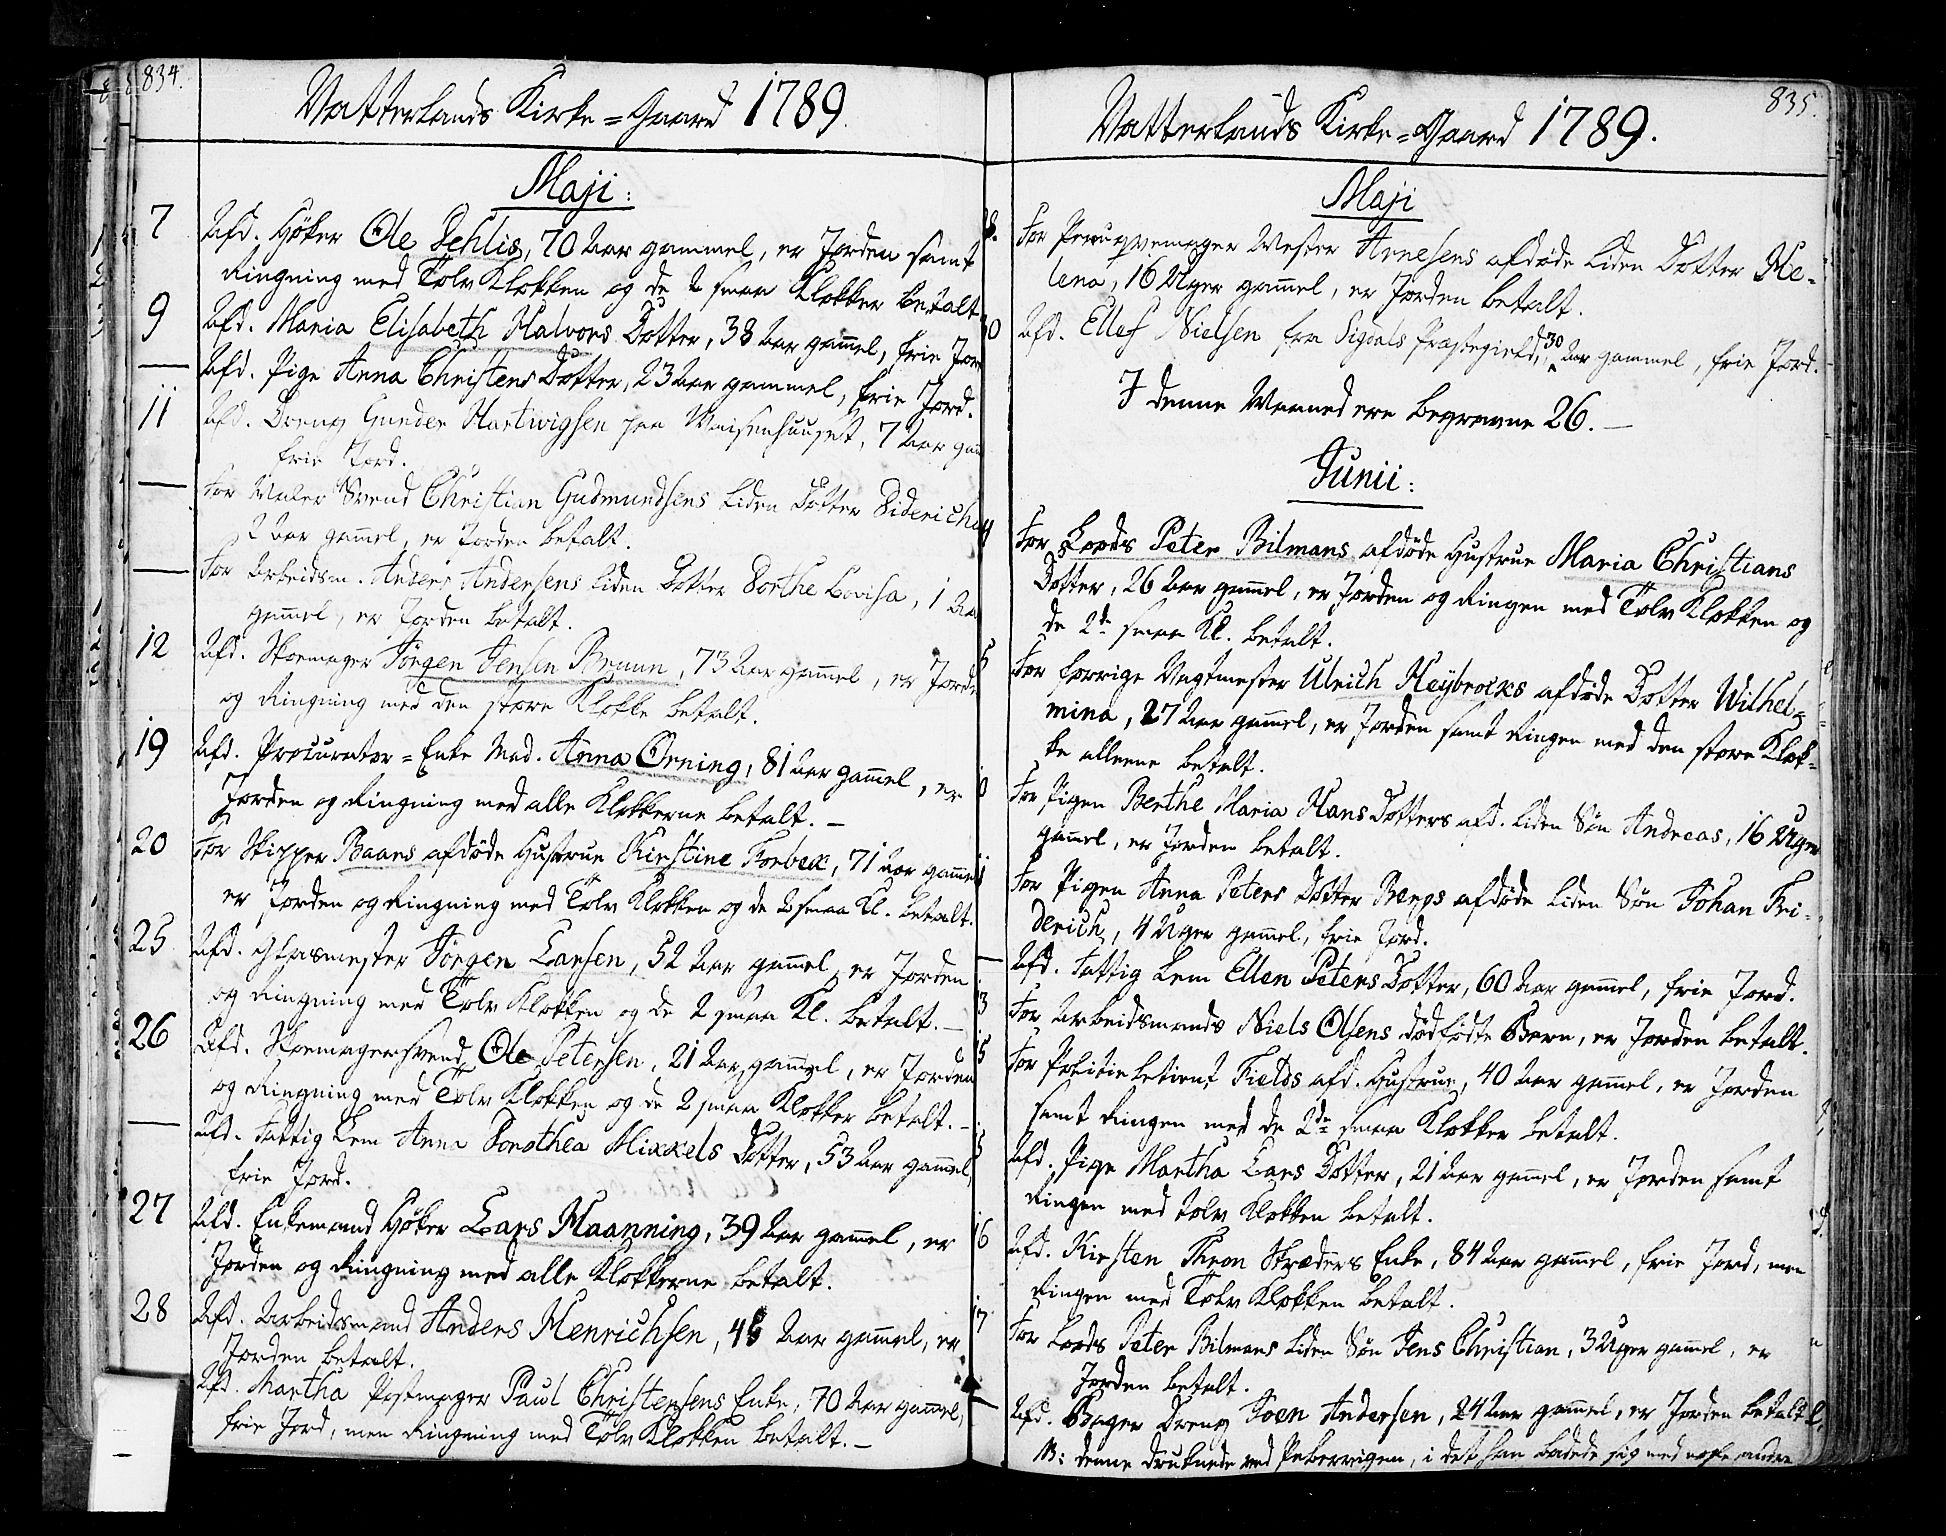 834.
Vatterlands Kirke=Gaard 1789.
Maji:
7 Afd. Höker Ole Dehlis, 70 Aar gammel, er Jorden samt
Ringning med Tolv Klokken og de 2 smaa Klokker betalt
9 Afd. Maria Elisabeth Halvors Dotter, 38 Aar gam̄el, frie Jor
— Afd. Pige Anna Christens Dotter, 23 Aar gammel, frie Jord.
11 Afd. Dreng Gunder Hartwigsen paa Vaisenhuuset, 7 Aar gam
frie Jord.
— For Maler Svend Christian Gudmundsens liden Dotter Didericha
2 Aar gam̄el, er Jorden betalt.
— For Arbeidsm. Anders Andersens liden Dotter Dorthe Lovisa, 1 Aa
gam̄el, er Jorden betalt.
12 Afd. Skomager Jörgen Jensen Bruun, 73 Aar gam̄el, er Jorde
og Ringning med den store Klokke betalt.
19 Afd. Procurator=Enke Mad. Anna Orning, 81 Aar gam̄el, er
Jorden og Ringning med alle Klokkerne betalt. —
20 For Skipper Baars afdöde Hustrue Kirstine Forbek, 71 Aar gamme
er Jorden og Ringning med Tolv Klokken og de 2 smaa Kl. betalt.
25 Afd. Glasmester Jörgen Larsen, 52 Aar gam̄el, er Jorden
og Ringning med Tolv Klokken og de 2 smaa Kl. betalt. —
26 Afd. Skomagersvend Ole Petersen, 21 Aar gam̄el, er Jorden
og Ringning med Tolv Klokken og de 2 smaa Klokker betalt. —
— Afd. Fattig Lem Anna Dorothea Mikkels Dotter, 53 Aar gam̄el,
frie Jord.
27 Afd. Enkemand Höker Lars Maanning, 39 Aar gam̄el, er
Jorden og Ringning med alle Klokkerne betalt.
28 Afd. Arbeidsmand Anders Henrichsen, 48 Aar gam̄el, er
Jorden betalt.
Afd. Martha Postmager Paul Christensens Enke, 70 Aar gam̄el,
frie Jord, men Ringning med Tolv Klokken betalt. —
835.
Vatterlands Kirke=Gaard 1789.
Maji
For Peruqvemager Wester Arnesens afdöde liden Dotter He-
lena, 16 Uger gam̄el, er Jorden betalt.
30 Afd. Ellef Nielsen fra Sigdals Præstegield, 30 Aar gammel, frie Jord.
I denne Maaned ere begravne 26. —
Junii:
For Lods Peter Bilmans afdöde Hustrue Maria Christians
Dotter, 26 Aar gam̄el, er Jorden og Ringen med Tolv Klokken og
de 2de smaa Kl. betalt.
5 For forrige Vagtmester Ulrich Heybrocks afdöde Dotter Wilhel=
mina, 27 Aar gam̄el, er Jorden samt Ringen med den store Klok-
ke alleene betalt.
For Pigen Berthe Maria Hans Dotters afd. liden Sön Andreas, 16 Uger
gam̄el, er Jorden betalt.
For Pigen Anna Peters Dotter Bergs afdöde liden Sön Johan Fri-
derich, 4 Uger gam̄el, frie Jord.
— Afd. Fattig Lem Ellen Peters Dotter, 60 Aar gam̄el, frie Jord.
13 For Arbeidsmands Niels Olsens dödfödte Barn, er Jorden betalt.
15 For Politie betient Fields afd. Hustrue, 40 Aar gam̄el, er Jorden
samt Ringen med de 2de smaa Klokker betalt.
Afd. Pige Martha Lars Dotter, 21 Aar gam̄el, er Jorden samt
Ringen med tolv Klokken betalt.
16 Afd. Kirsten Thron Skræders Enke, 84 Aar gam̄el, frie Jord, men
Ringen med Tolv Klokken betalt.
17 For Lods Peter Bilmans liden Sön Jens Christian, 3 Uger gam̄el, er
Jorden betalt.
— Afd. Bager Dreng Joen Andersen, 24 Aar gam̄el, er Jorden betalt
NB: denne druknede ved Peberviigen, i det han badede sig med nogle andre